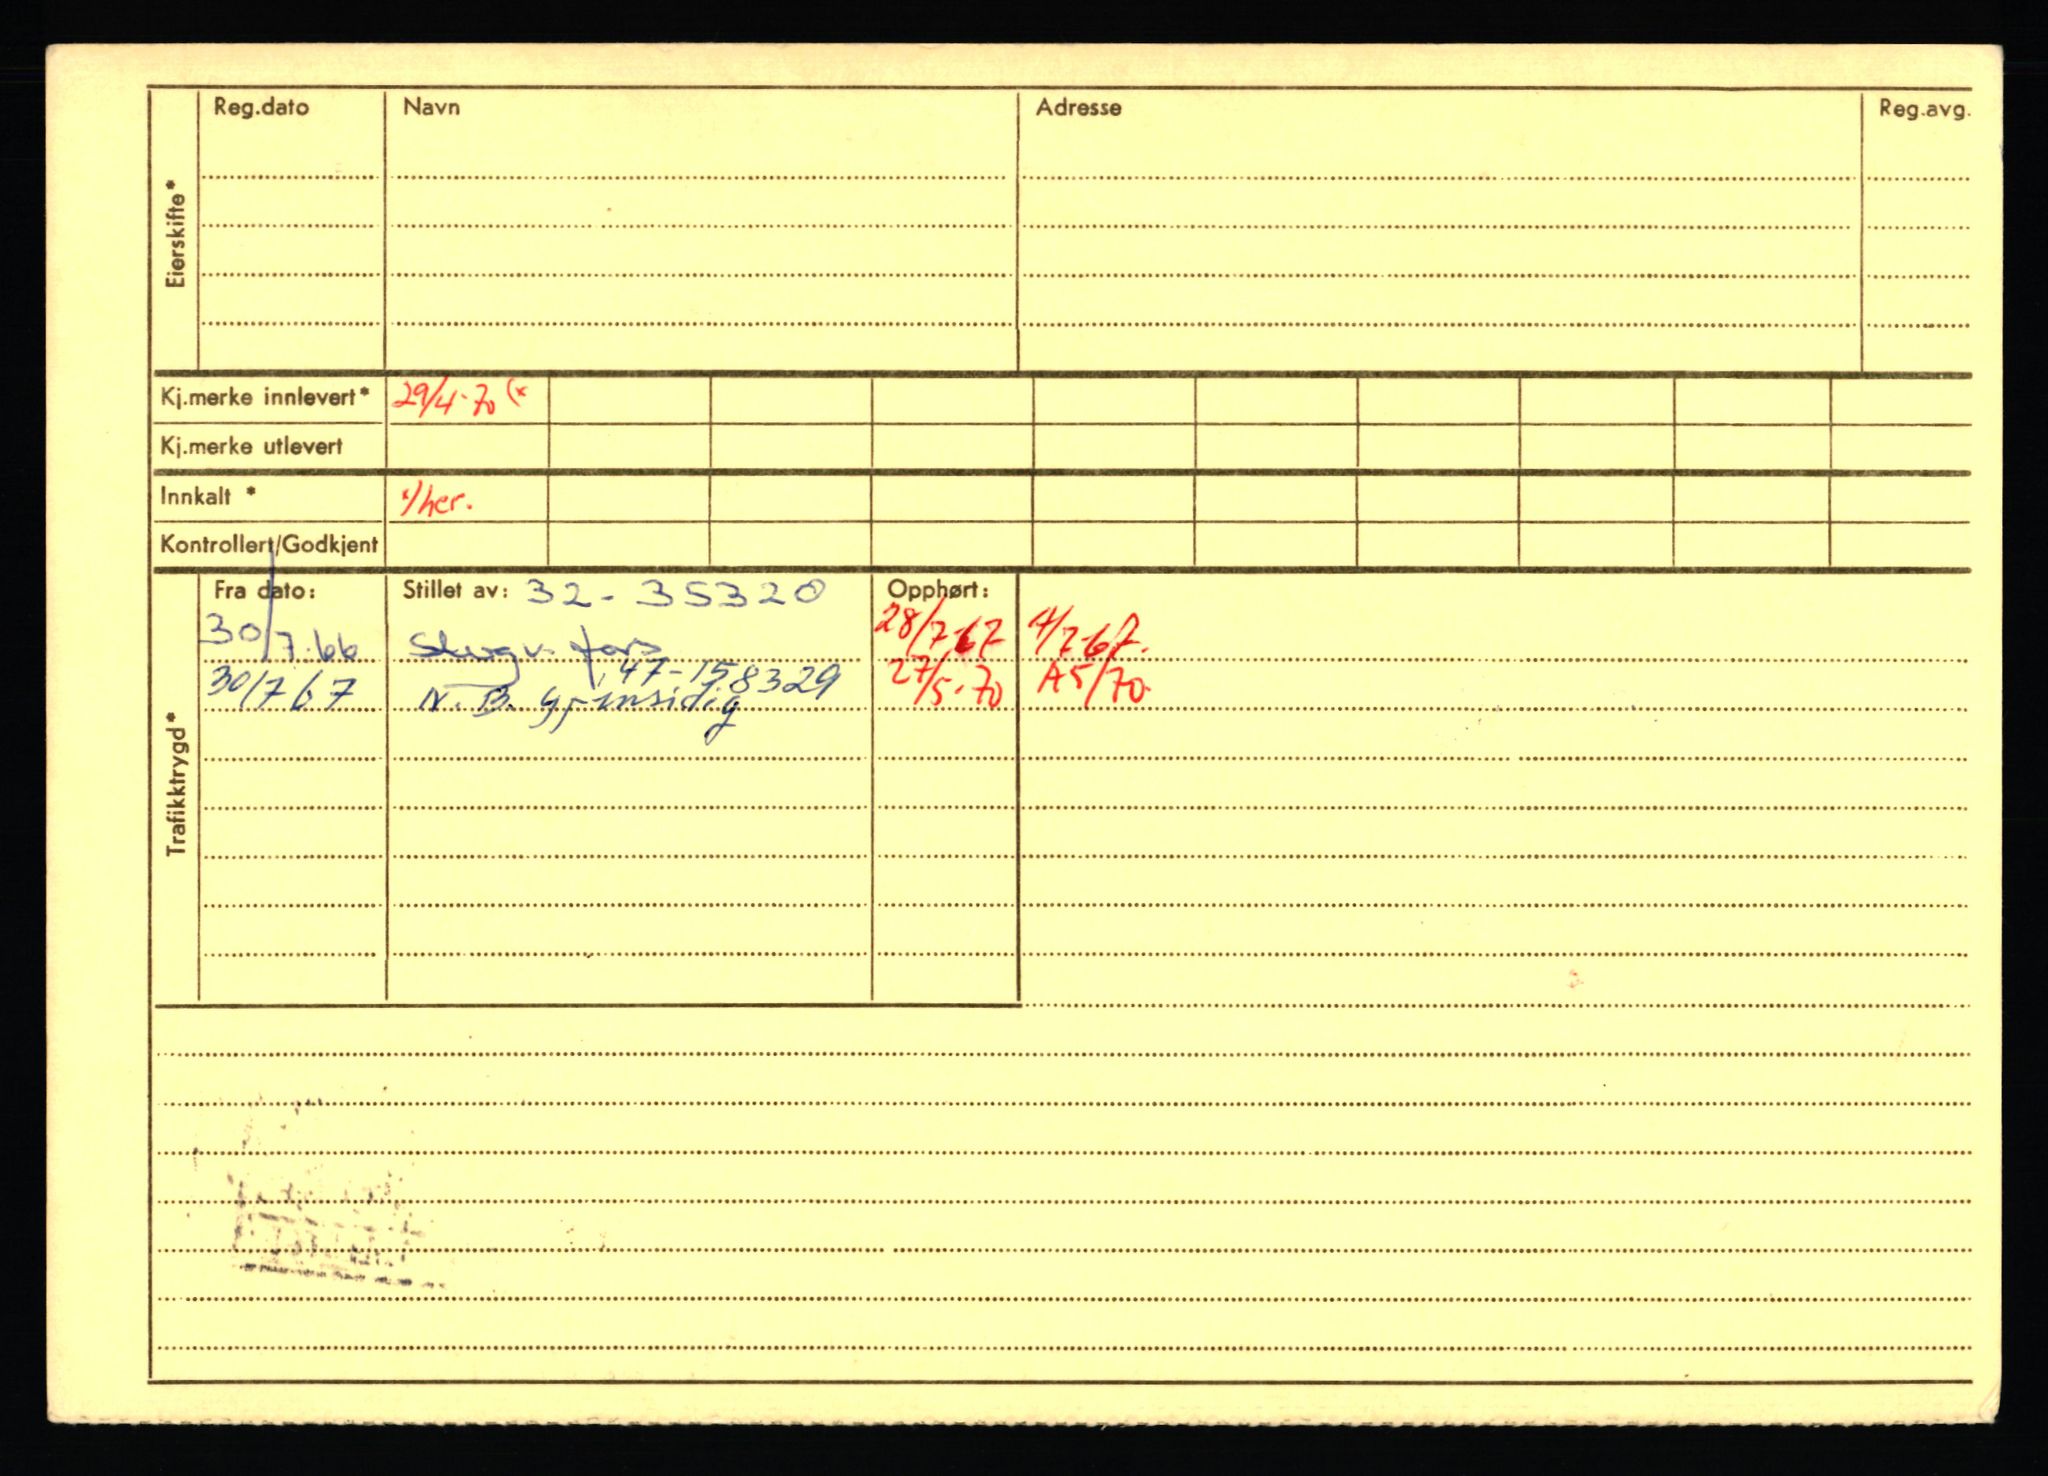 Eierskifte*
Reg.dato Navn Adresse Reg.avg.
Kj.merke innlevert* 29/4-70 (*
Kj.merke utlevert
Innkalt * */her.
Kontrollert/Godkjent
Trafikktrygd*
Fra dato: Stillet av: 32-35320 Opphørt:
30/7-66 28/7-67 4/7-67.
47-158329
30/7 67 N. B. Gjensidig 27/5-70 A5/70.